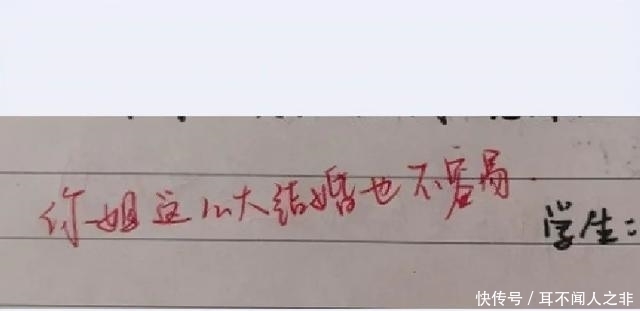 你姐这么大结婚也不容易.
学生:
快传号/耳不闻人之非